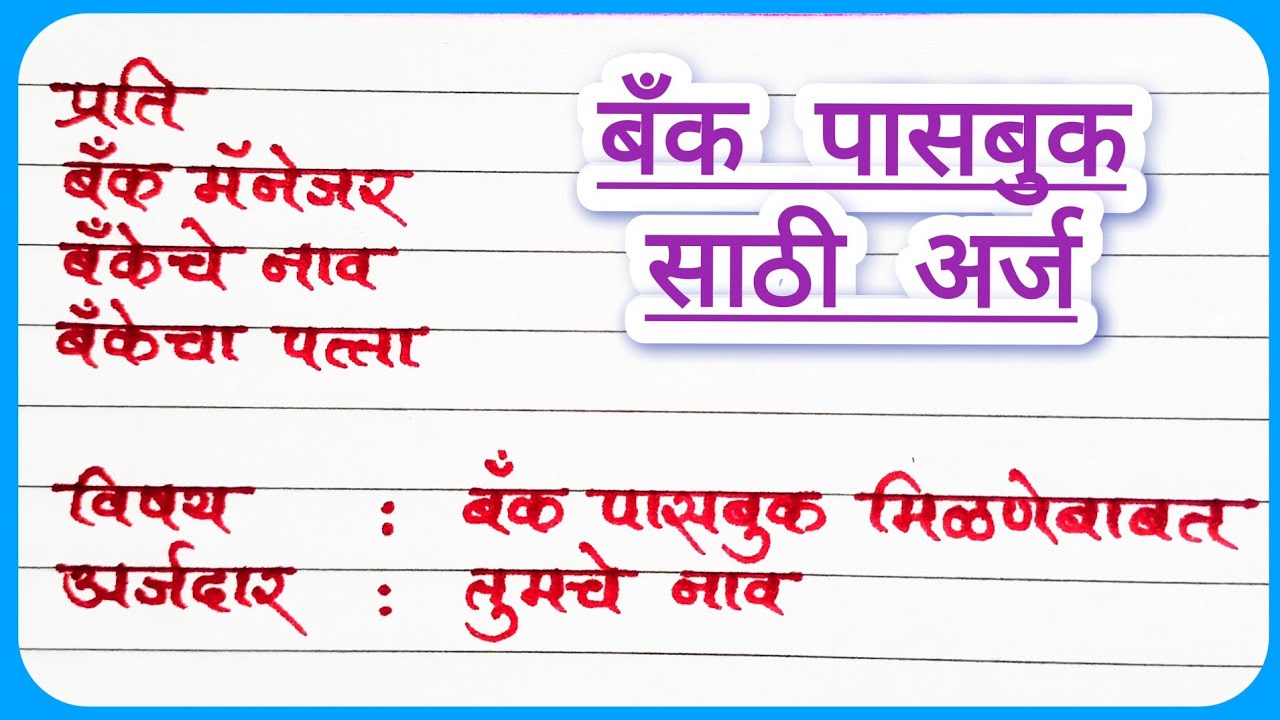 प्रति
बँक मॅनेजर
बँकेचे नाव
बँकेचा पत्ता
बँक पासबुक
साठी अर्ज
विषय : बँक पासबुक मिळणेबाबत
अर्जदार : तुमचे नाव